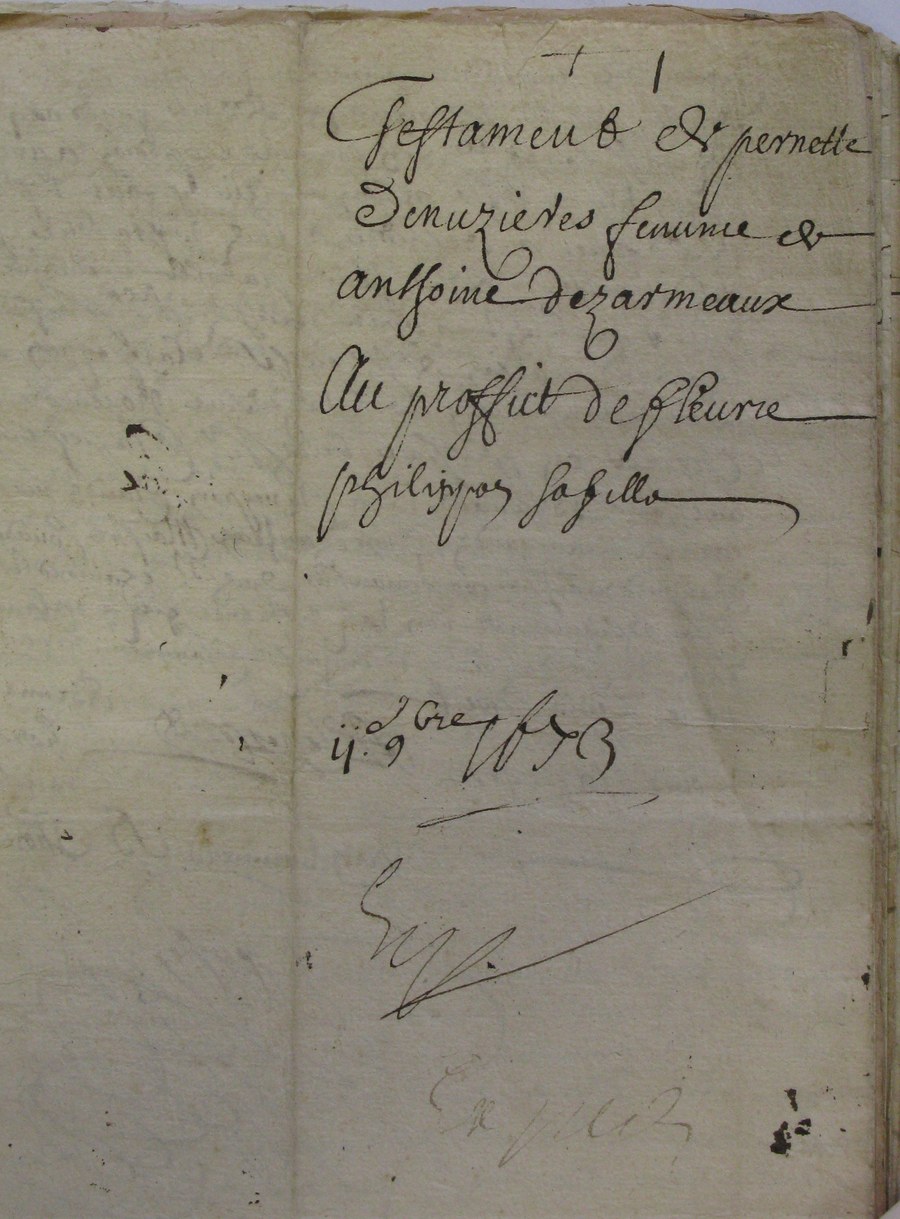 Testament de pernette
Denuzieres femme de
anthoine dezarmeaux
Au proffict de fleurie
philippon sa fille
ij. 9bre 1673